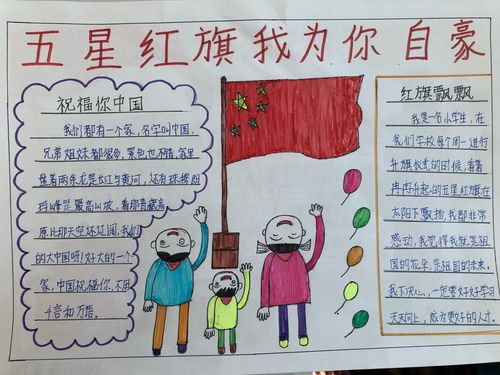 五星红旗我为你自豪
祝福你中国
我们都有一个家,名字叫中国,
兄弟姐妹都很多,景色也不错,家里
盘着两条龙是长江与黄河,还有珠穆朗
玛峰是最高山坡,看那青藏高
原比那天空还辽阔,我们
的大中国呀!好大的一个
家,中国祝福你,不用
千言和万语。
红旗飘飘
我是一名小学生,在
我们学校每个周一进行
升旗仪式的时候,看着
冉冉升起的五星红旗在
太阳下飘扬,我都非常
感动,我觉得我就是祖
国的花朵,是祖国的未来。
我下决心,一定要好好学习
天天向上,成为更好的人才。